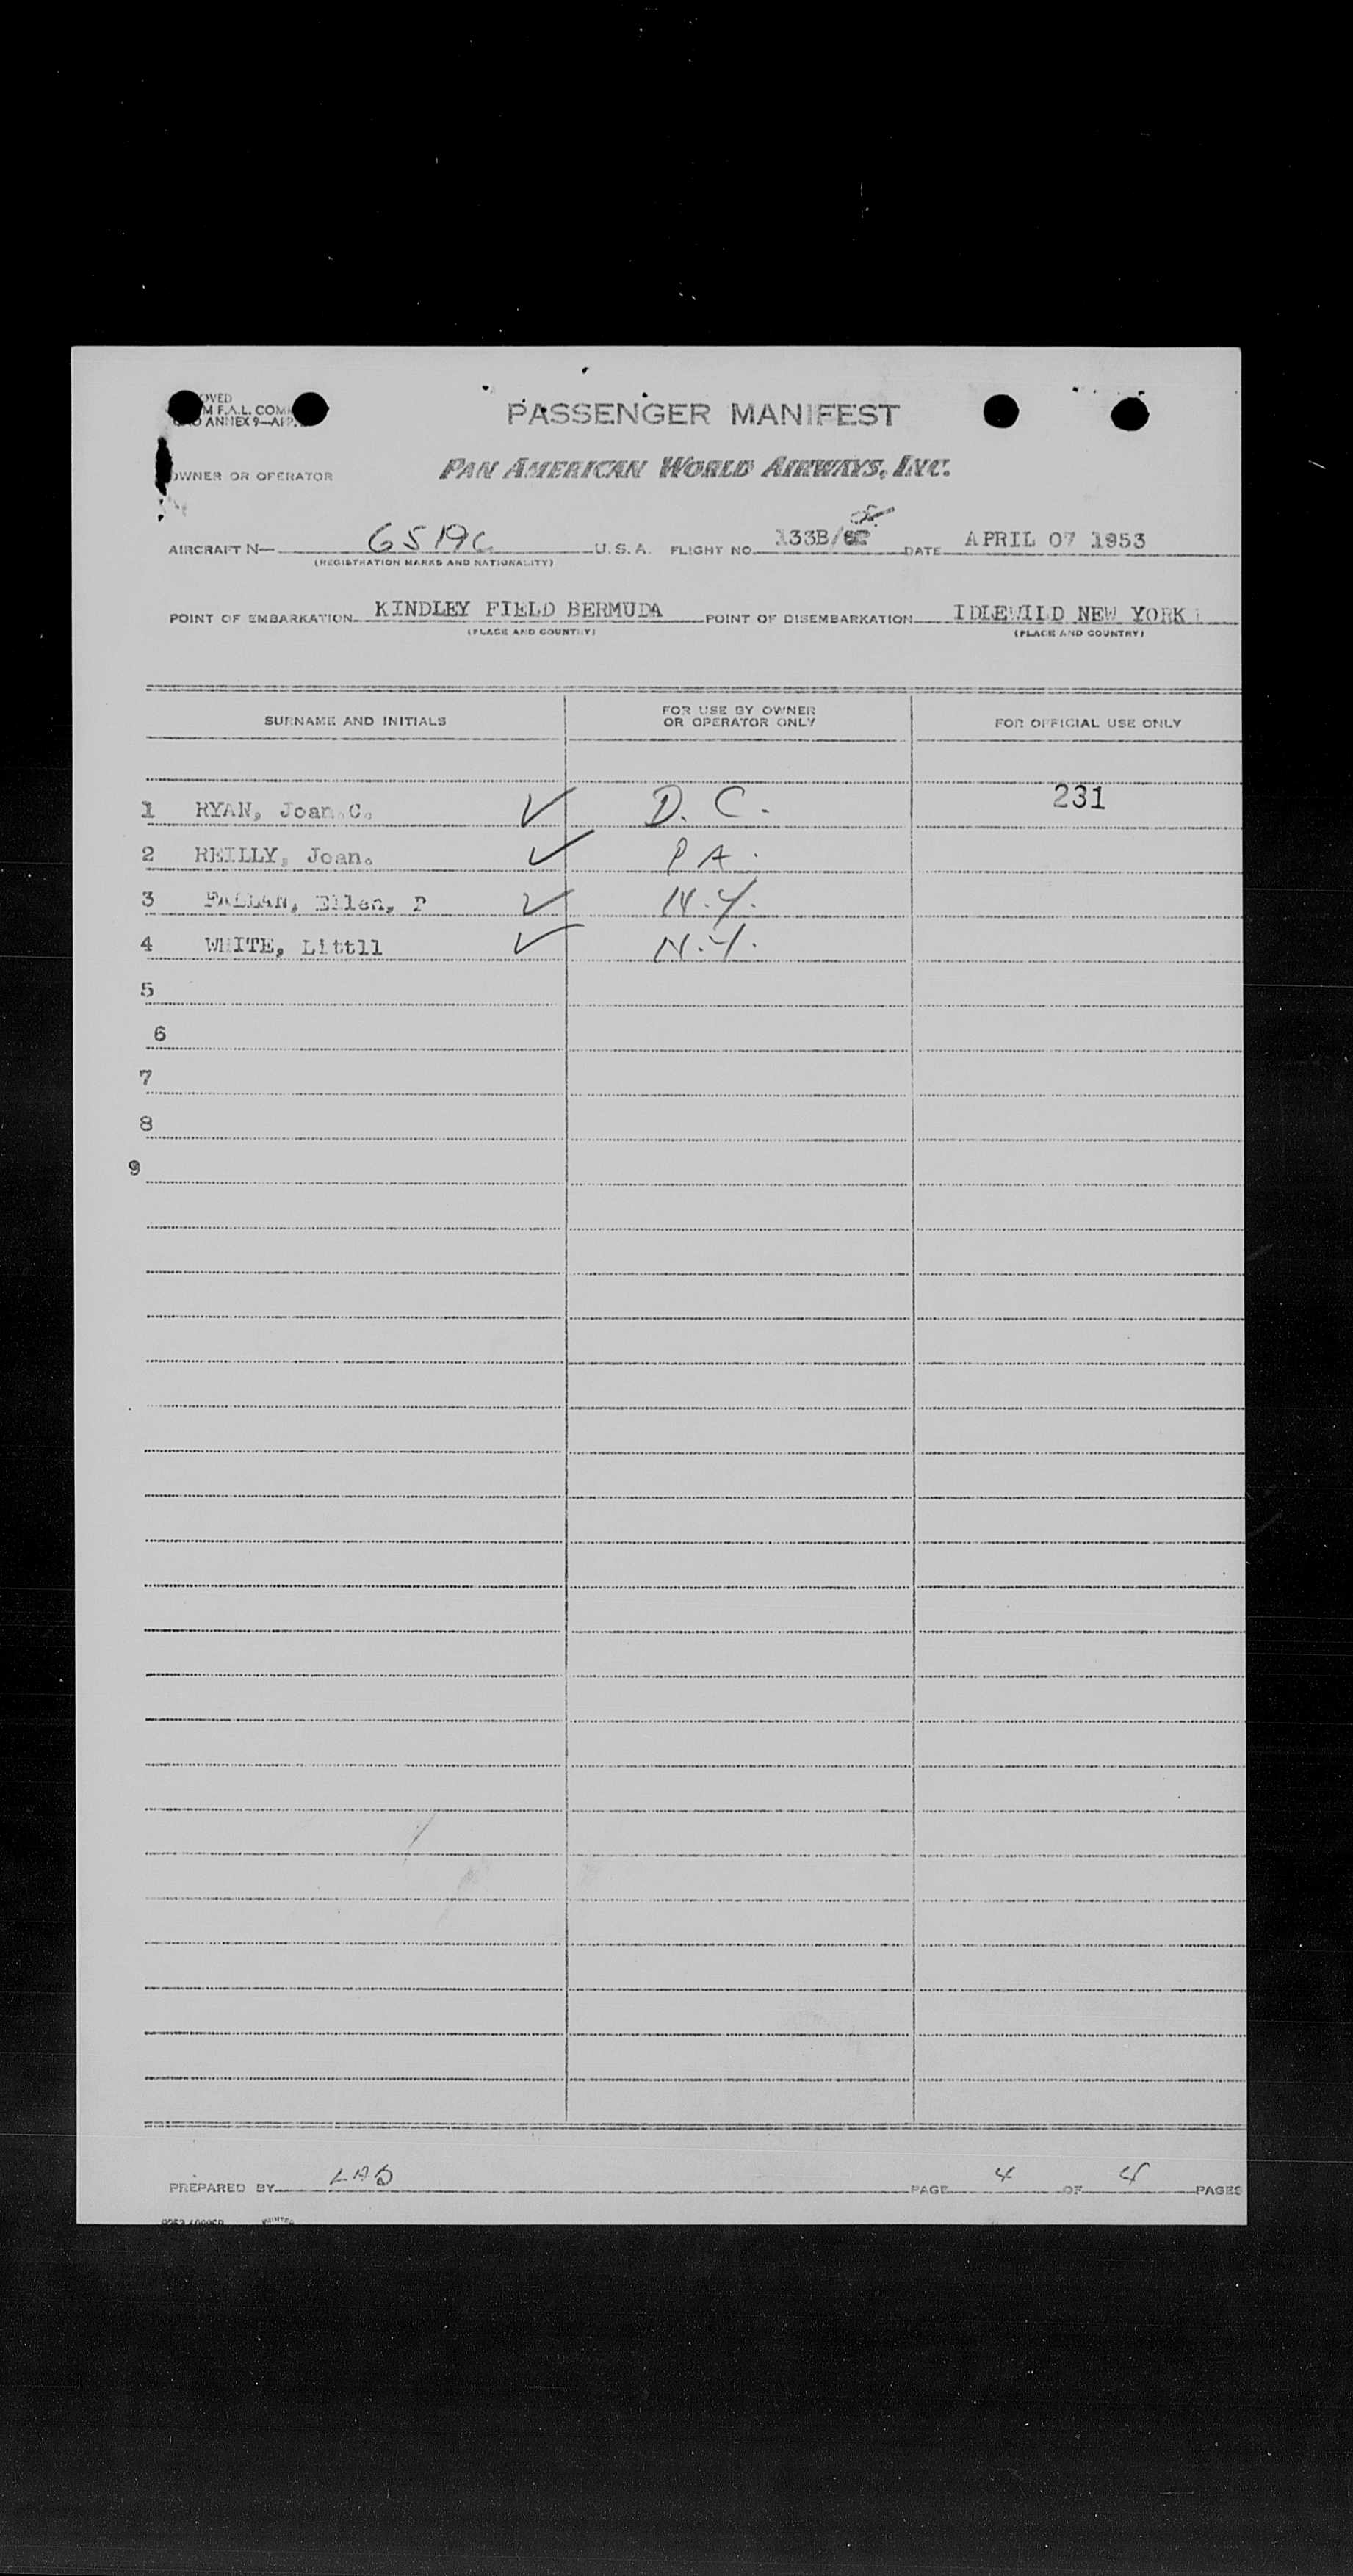 OVED
M F.A.L. COM
O ANNEX 9—APP.
PASSENGER MANIFEST
OWNER OR OPERATOR PAN AMERICAN WORLD AIRWAYS, INC.
AIRCRAFT N— 6519C U.S.A. FLIGHT NO. 133B/ DATE APRIL 07 1953
(REGISTRATION MARKS AND NATIONALITY)
POINT OF EMBARKATION KINDLEY FIELD BERMUDA POINT OF DISEMBARKATION IDLEWILD NEW YORK
(PLACE AND COUNTRY) (PLACE AND COUNTRY)
SURNAME AND INITIALS FOR USE BY OWNER OR OPERATOR ONLY FOR OFFICIAL USE ONLY
1 RYAN, Joan.C. ✓ D.C. 231
2 REILLY, Joan. ✓ PA.
3 FALLAN, Ellen, P ✓ N.Y.
4 WHITE, Littll ✓ N.Y.
5
6
7
8
9
PREPARED BY LAB PAGE 4 OF 4 PAGES